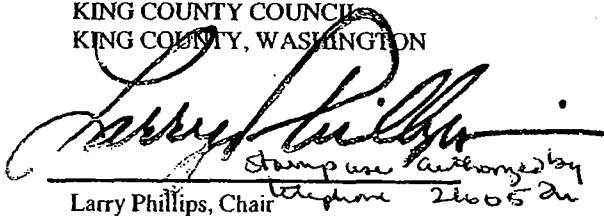 KING COUNTY COUNCIL
KING COUNTY, WASHINGTON
Larry Phillips
Stamp use authorized by
telephone
Larry Phillips, Chair